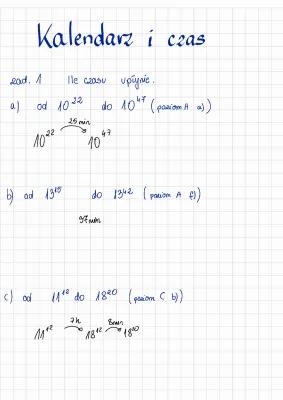 Kalendarz i czas
zad. 1 Ile czasu upłynie.
a) od 10²² do 10⁴⁷ (poziom A a))
25 min
10²² 10⁴⁷
b) od 13¹⁵ do 13⁴² (poziom A f))
27min
c) od 11¹² do 18²⁰ (poziom C b))
7h 8min
11¹² 18¹² 18²⁰